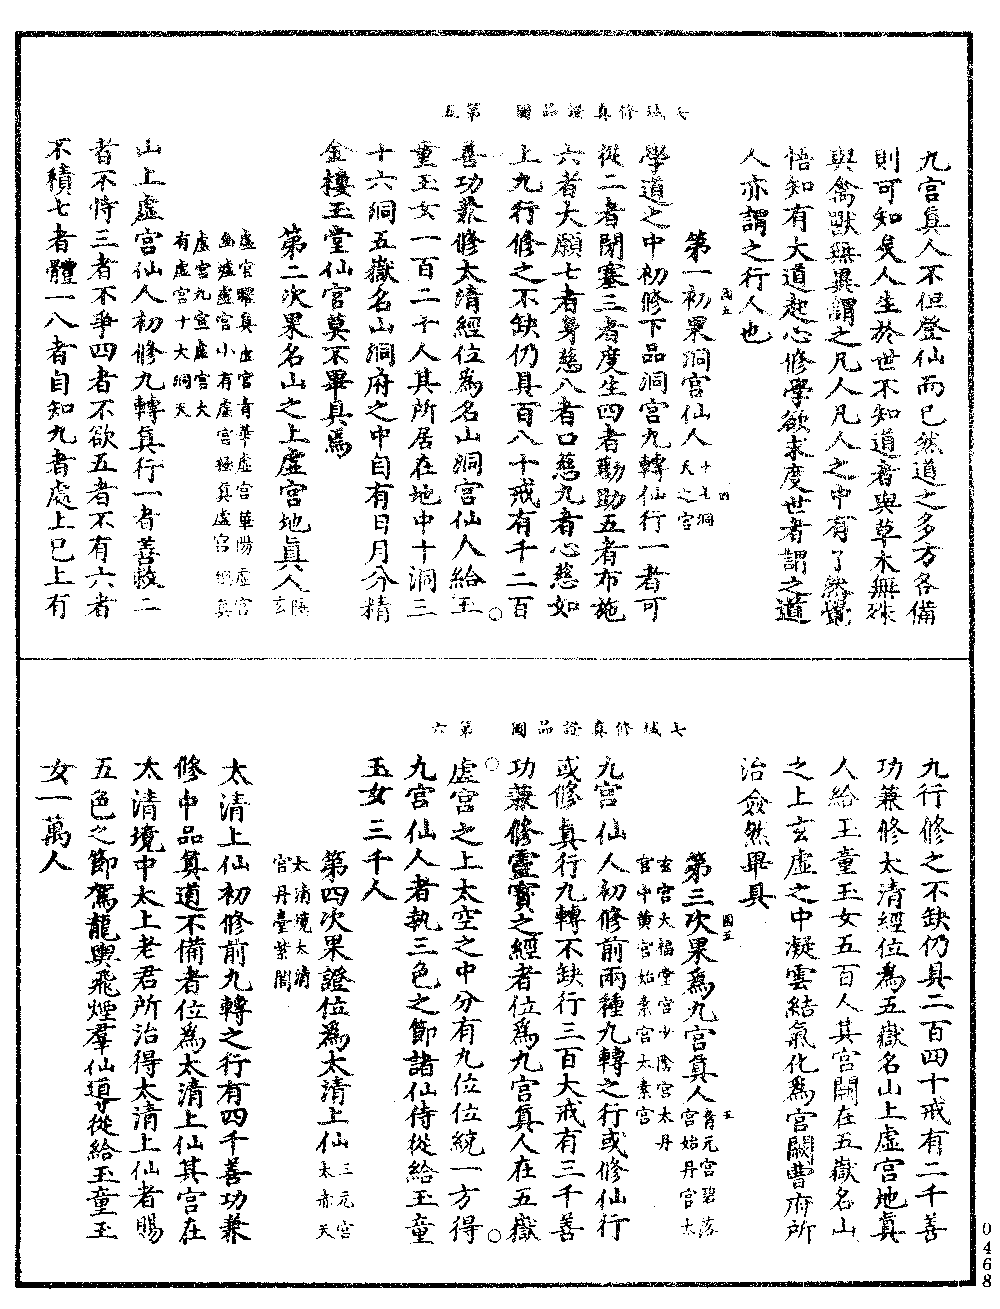 七域修真證品圖　第五
九宮真人不但登仙而已然道之多方各備
則可知矣人生於世不知道者與草木無殊
與禽獸無異謂之凡人凡人之中有了然覺
悟知有大道起心修學欲求度世者謂之道
人亦謂之行人也
第一初果洞宮仙人十七洞
天之宮
學道之中初修下品洞宮九轉仙行一者可
從二者閉塞三者度生四者勸助五者布施
六者大願七者身慈八者口慈九者心慈如
上九行修之不缺仍具百八十戒有千二百
善功兼修太清經位為名山洞宮仙人給玉
童玉女一百二十人其所居在地中十洞三
十六洞五嶽名山洞府之中自有日月分精
金樓玉堂仙官莫不畢具焉
第二次果名山之上虛宮地真人
虛宮曜真虛宮青華虛宮華陽虛宮
幽墟虛宮小有虛宮極真虛宮
虛宮九室虛宮大
有虛宮十大洞天
山上虛宮仙人初修九轉真行一者善救二
者不恃三者不爭四者不欲五者不有六者
不積七者體一八者自知九者處上已上有
七域修真證品圖　第六
九行修之不缺仍具二百四十戒有二千善
功兼修太清經位為五嶽名山上虛宮地真
人給玉童玉女五百人其宮闕在五嶽名山
之上玄虛之中凝雲結氣化為宮闕曹府所
治僉然畢具
第三次果為九宮真人青元宮碧落
宮始丹宮太
玄宮大福堂宮少陰宮太丹
宮中黃宮始素宮太素宮
九宮仙人初修前兩種九轉之行或修仙行
或修真行九轉不缺行三百大戒有三千善
功兼修靈寶之經者位為九宮真人在五嶽
虛宮之上太空之中分有九位位統一方得
九宮仙人者執三色之節諸仙侍從給玉童
玉女三千人
第四次果證位為太清上仙三元宮
太赤天
太清境太清
宮丹臺紫閣
太清上仙初修前九轉之行有四千善功兼
修中品真道不備者位為太清上仙其宮在
太清境中太上老君所治得太清上仙者賜
五色之節駕龍輿飛煙羣仙導從給玉童玉
女一萬人
0468